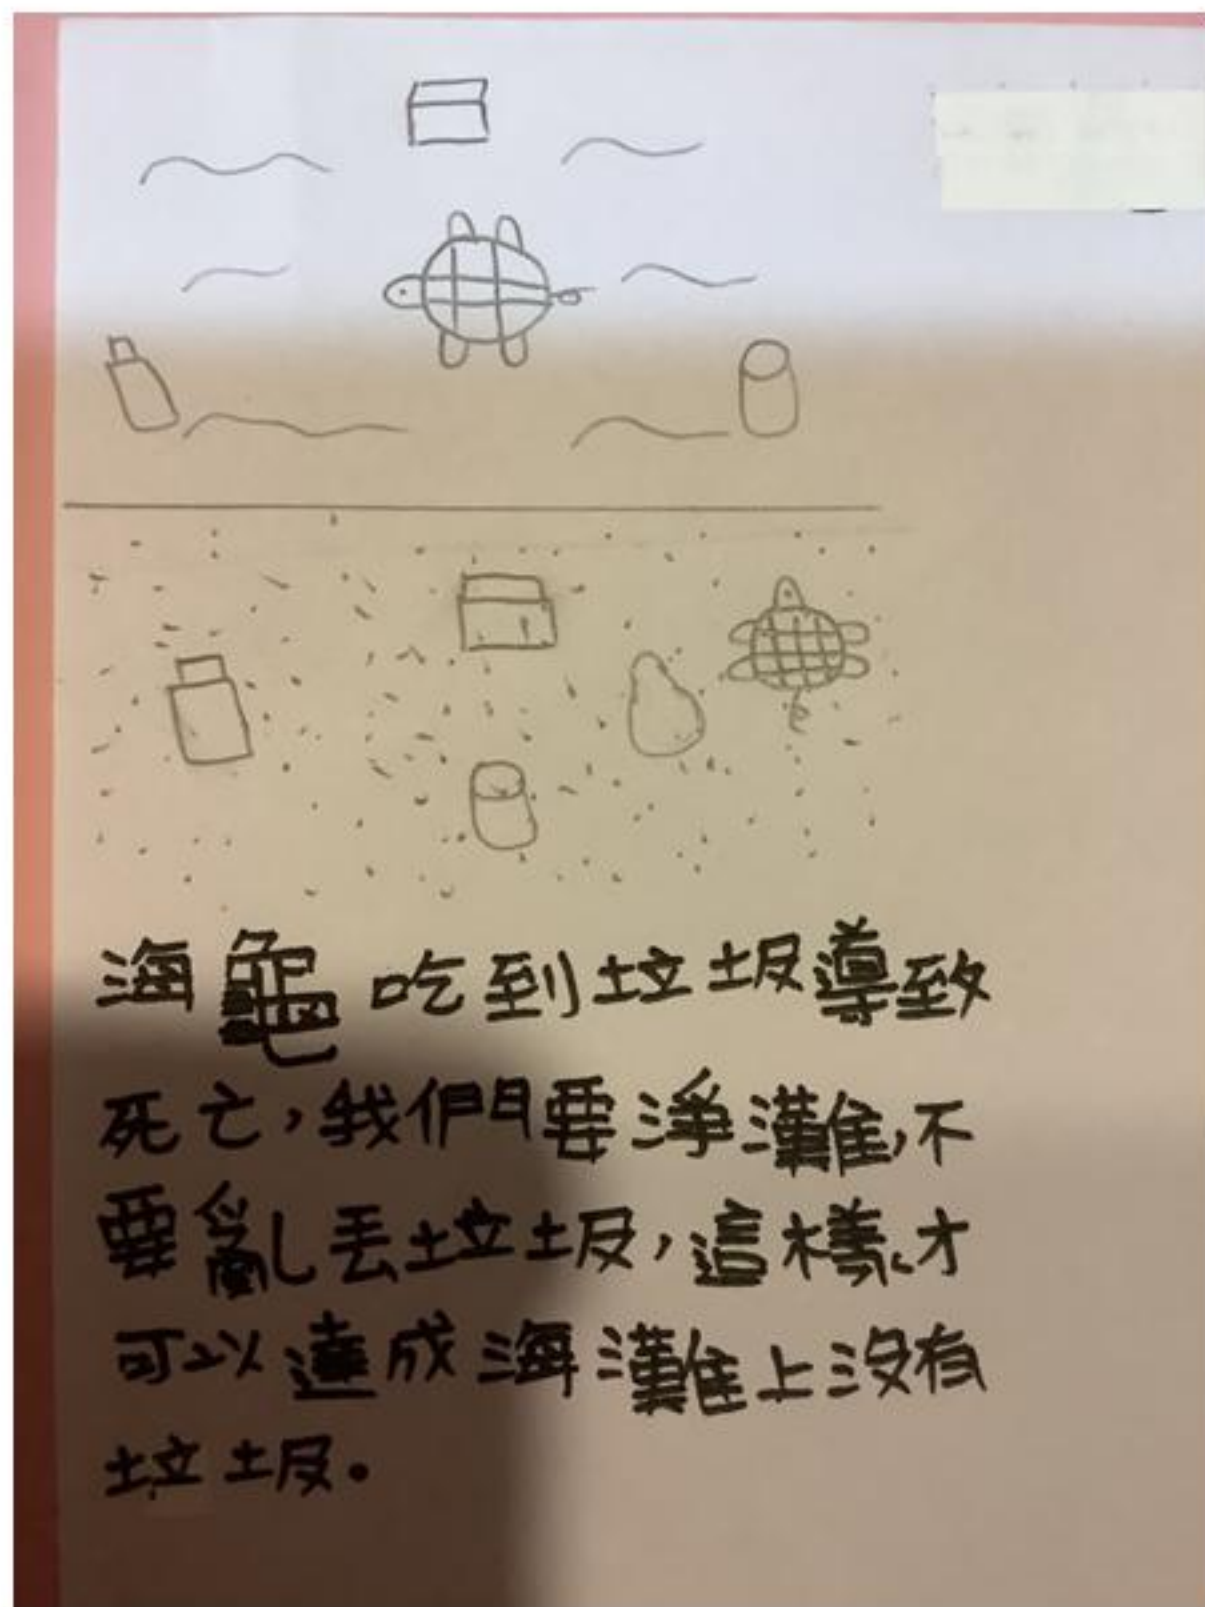 海龜吃到垃圾導致
死亡，我們要淨灘，不
要亂丟垃圾，這樣才
可以達成海灘上沒有
垃圾。